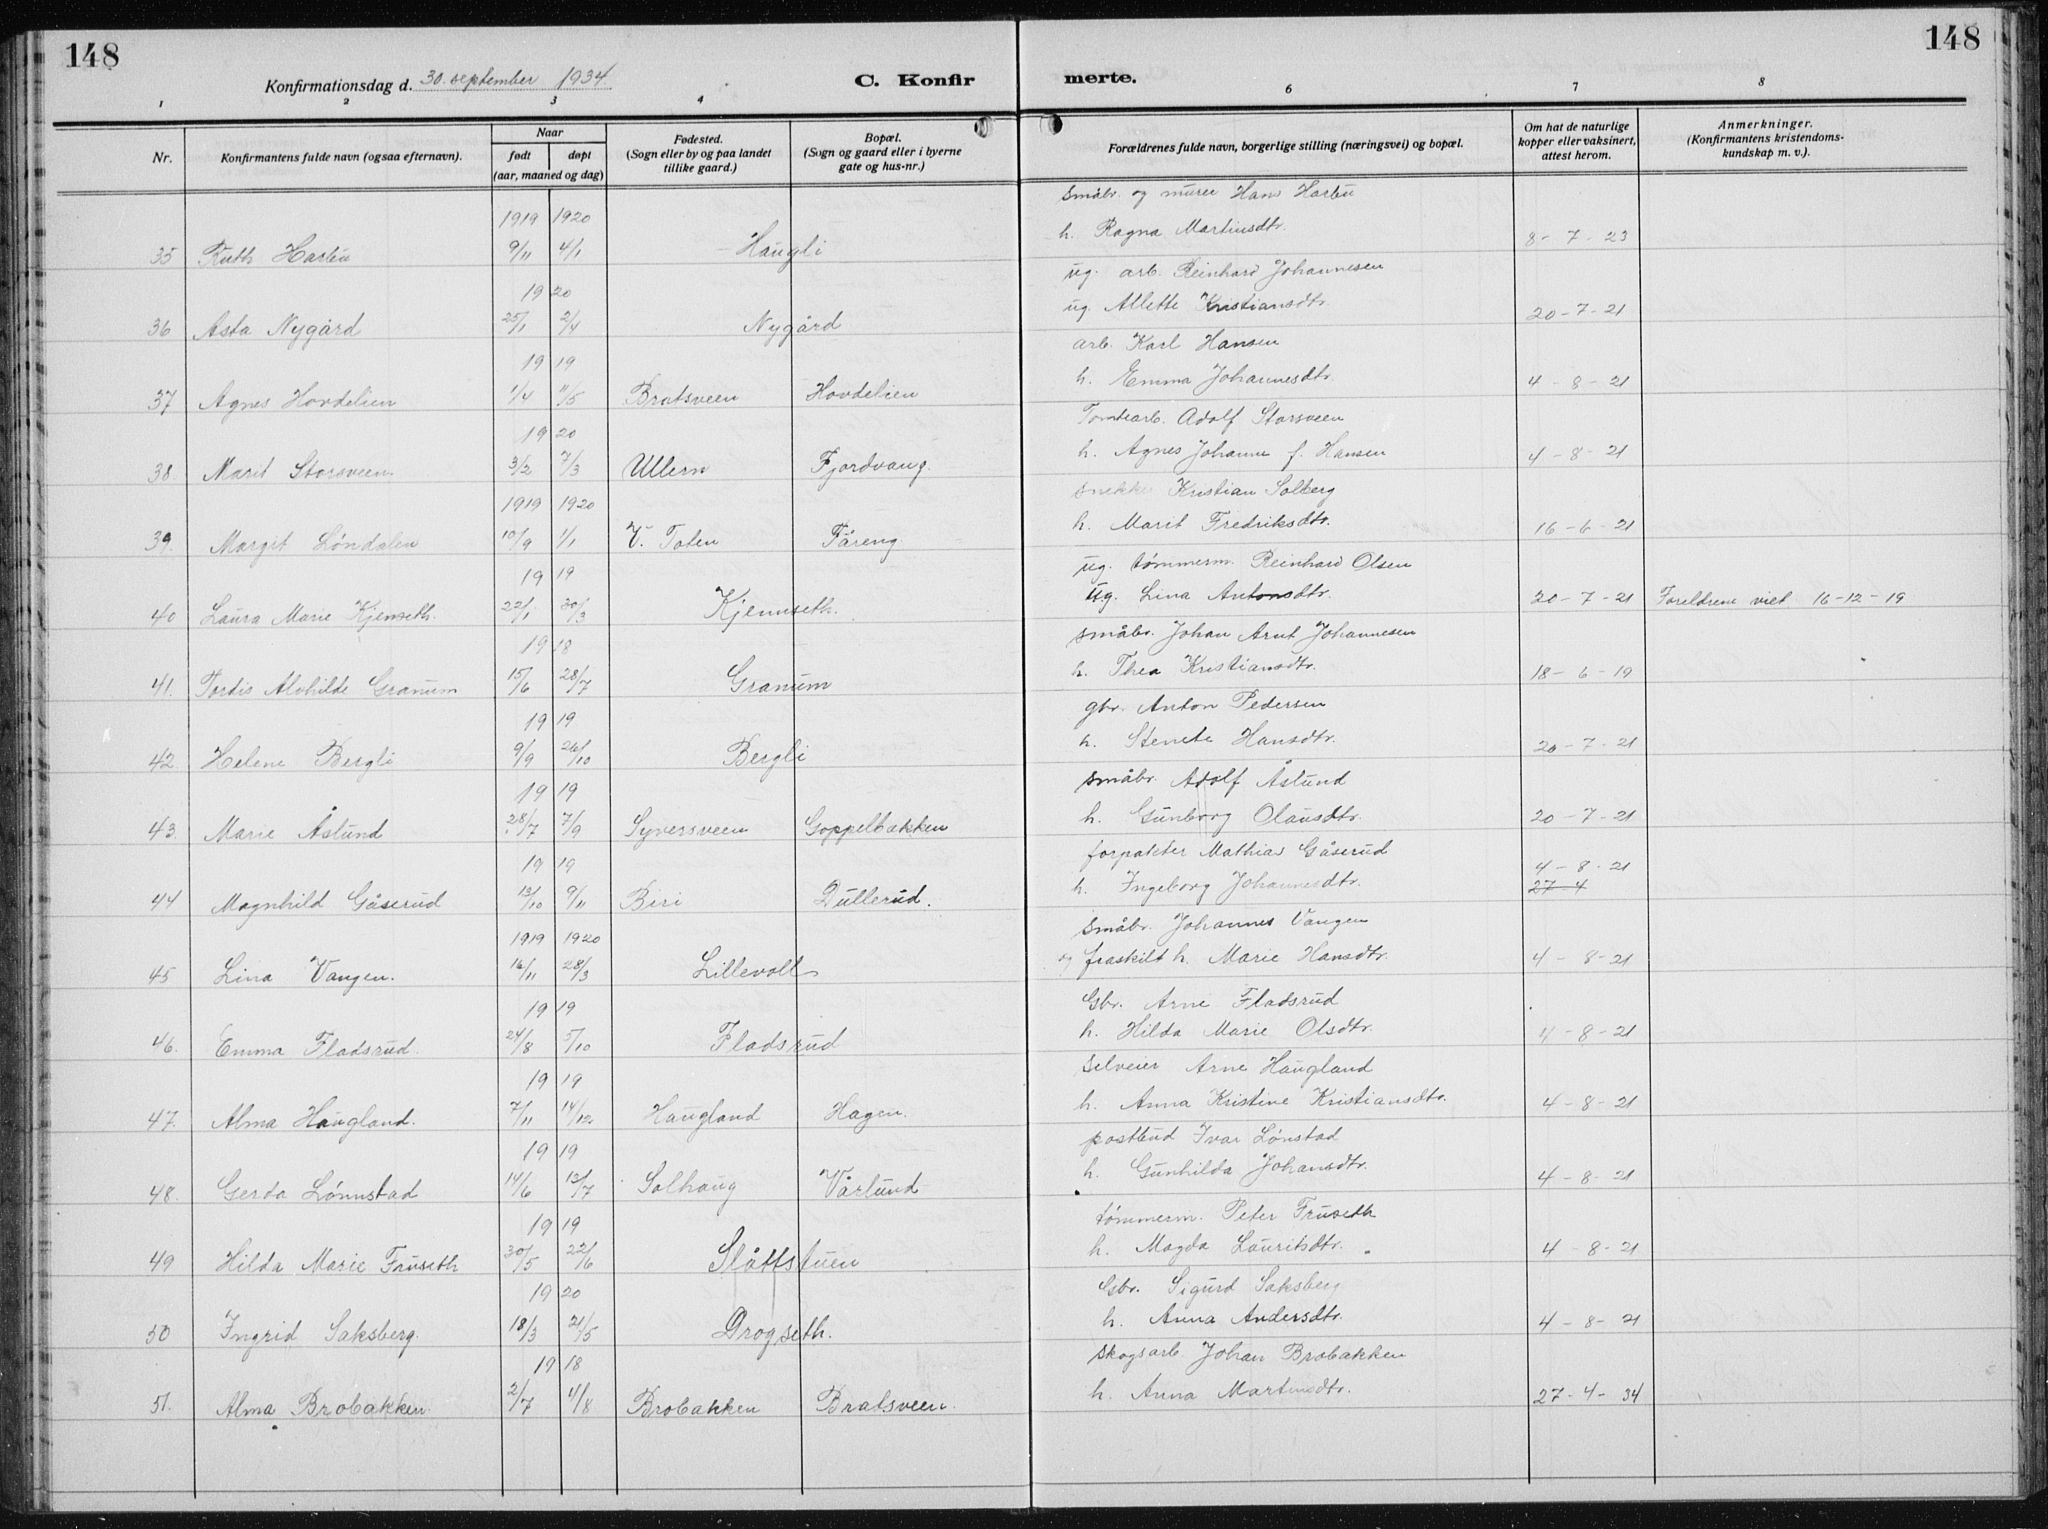 148
148
Konfirmationsdag d. 30. september 1934.
C. Konfir
merte.
1 2 3 4 6 7 8
Nr.
Konfirmantens fulde navn (ogsaa efternavn).
Naar
født døpt
(aar, maaned og dag)
Fødested.
(Sogn eller by og paa landet
tillike gaard.)
Bopæl.
(Sogn og gaard eller i byerne
gate og hus-nr.)
Forældrenes fulde navn, borgerlige stilling (næringsvei) og bopæl.
Om hat de naturlige
kopper eller vaksinert,
attest herom.
Anmerkninger.
(Konfirmantens kristendoms-
kundskap m. v.).
1919 1920 småbr. og murer Hans Harbu
35 Ruth Harbu 9/11 4/1 Haugli h. Ragna Martinsdtr. 8-7-23
1920 ug. arb. Reinhard Johannesen
36 Asta Nygård 25/1 2/4 Nygård ug. Allette Kristiansdtr. 20-7-21
1919 arb. Karl Hansen
37 Agnes Hovdelien 1/4 11/5 Bratsveen Hovdelien h. Emma Johannesdtr. 4-8-21
1920 Tomtearb. Adolf Storsveen
38 Marit Storsveen. 3/2 7/3 Ullern Fjordvang. h. Agnes Johanne f. Hansen 4-8-21
1919 1920 snekker Kristian Solberg
39. Margit Løndalen 10/9 1/1 V. Toten Påreng h. Marit Fredriksdtr. 16-6-21
1919 ug. tømmerm. Reinhard Olsen
40 Laura Marie Kjenseth. 22/1 30/3 Kjennseth. ug. Lina Antonsdtr. 20-7-21 Foreldrene viet 16-12-19
1918 småbr. Johan Arnt Johannesen
41. Tordis Alvhilde Granum 15/6 28/7 Granum h. Thea Kristiansdtr. 18-6-19
1919 gbr. Anton Pedersen
42. Helene Bergli 9/9 26/10 Bergli h. Stenete Hansdtr. 20-7-21
1919 småbr. Adolf Åslund
43. Marie Åslund 28/7 7/9 Syversveen Goppelbakken h. Gunborg Olausdtr. 20-7-21
1919 forpakter Mathias Gåserud 4-8-21
44 Magnhild Gåserud 13/10 9/11 Biri Dullerud. h. Ingeborg Johannesdtr. 27-4
1919 1920 småbr. Johannes Vangen
45 Lina Vangen. 16/11 28/3 Lillevoll og fraskilt h. Marie Hansdtr. 4-8-21
1919 Gbr. Arne Fladsrud
46. Emma Fladsrud. 24/8 5/10 Fladsrud h. Hilda Marie Olsdtr. 4-8-21
1919 selveier Arne Haugland
47. Alma Haugland. 7/11 14/12. Haugland Hagen. h. Anna Kristine Kristiansdtr. 4-8-21
1919 postbud Ivar Lønstad
48. Gerda Lønnstad 14/6 13/7 Solhaug Vårlund h. Gunhilda Johansdtr. 4-8-21
1919 tømmerm. Peter Fruseth
49 Hilda Marie Fruseth 30/5 22/6 Slåttstuen h. Magda Lauritsdtr. 4-8-21
1920 Gbr. Sigurd Saksberg
50 Ingrid Saksberg. 18/3 21/5 Drogseth. h. Anna Andersdtr. 4-8-21
1918 skogsarb Johan Brobakken
51. Alma Brobakken. 2/7 11/8 Brobakken Bratsveen. h. Anna Martinsdtr. 27-4-34